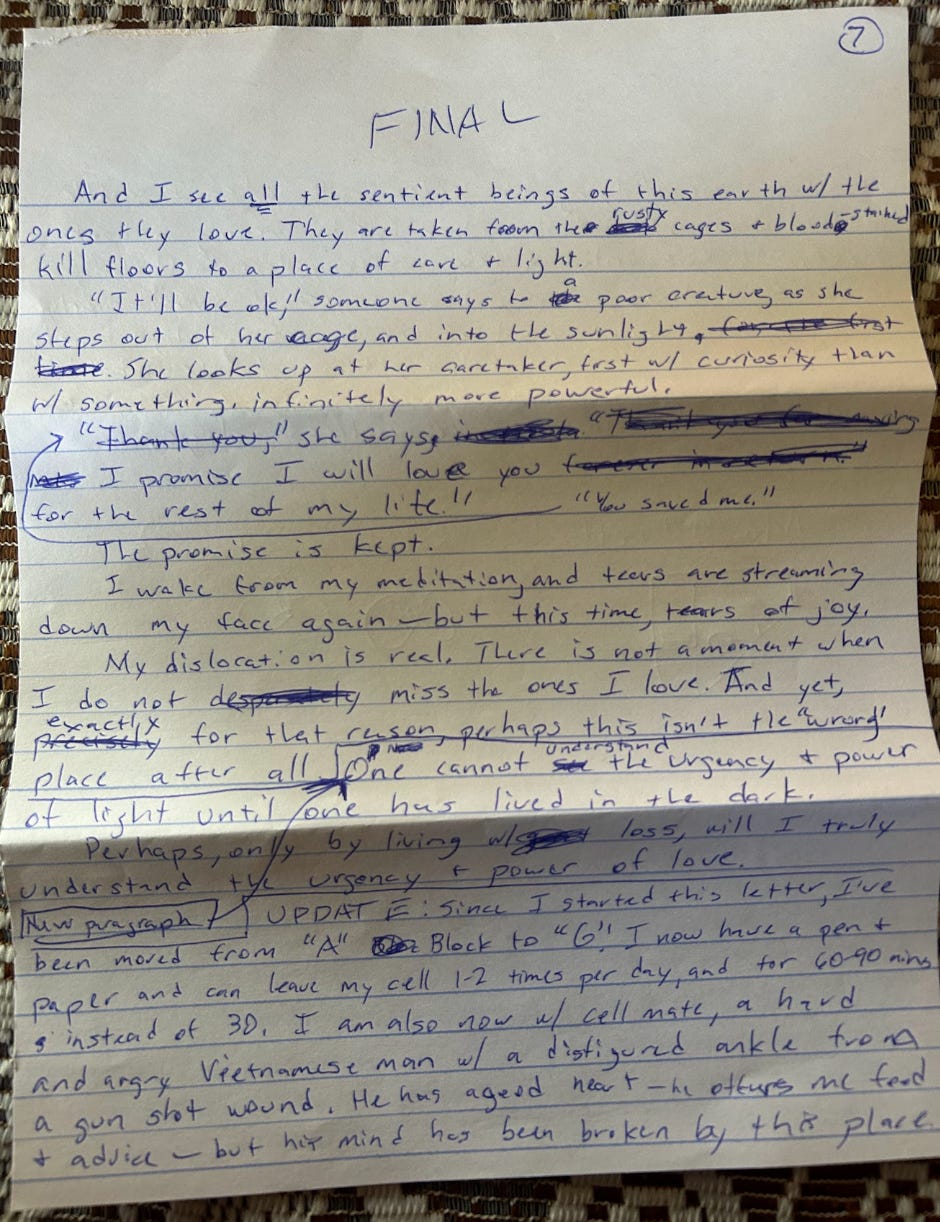 7
FINAL
And I see all the sentient beings of this earth w/ the
ones they love. They are taken from the rusty cages + blood-stained
kill floors to a place of care + light.
"It'll be ok," someone says to a poor creature, as she
steps out of her cage, and into the sunlight, for the first
time. She looks up at her caretaker, first w/ curiosity than
w/ something, infinitely more powerful.
"Thank you," she says, "Thank you for saving
I promise I will love you forever
for the rest of my life." "You saved me."
The promise is kept.
I wake from my meditation, and tears are streaming
down my face again – but this time, tears of joy.
My dislocation is real. There is not a moment when
I do not desperately miss the ones I love. And yet,
exactly
precisely for that reason, perhaps this isn't the "wrong"
place after all. One cannot see understand the urgency + power
of light until one has lived in the dark.
Perhaps, only by living w/ loss, will I truly
understand the urgency + power of love.
New paragraph UPDATE: Since I started this letter, I've
been moved from "A" Block to "G". I now have a pen +
paper and can leave my cell 1-2 times per day, and for 60-90 mins
instead of 30. I am also now w/ cell mate, a hard
and angry Vietnamese man w/ a disfigured ankle from
a gun shot wound. He has a good heart – he offers me food
+ advice – but his mind has been broken by this place.